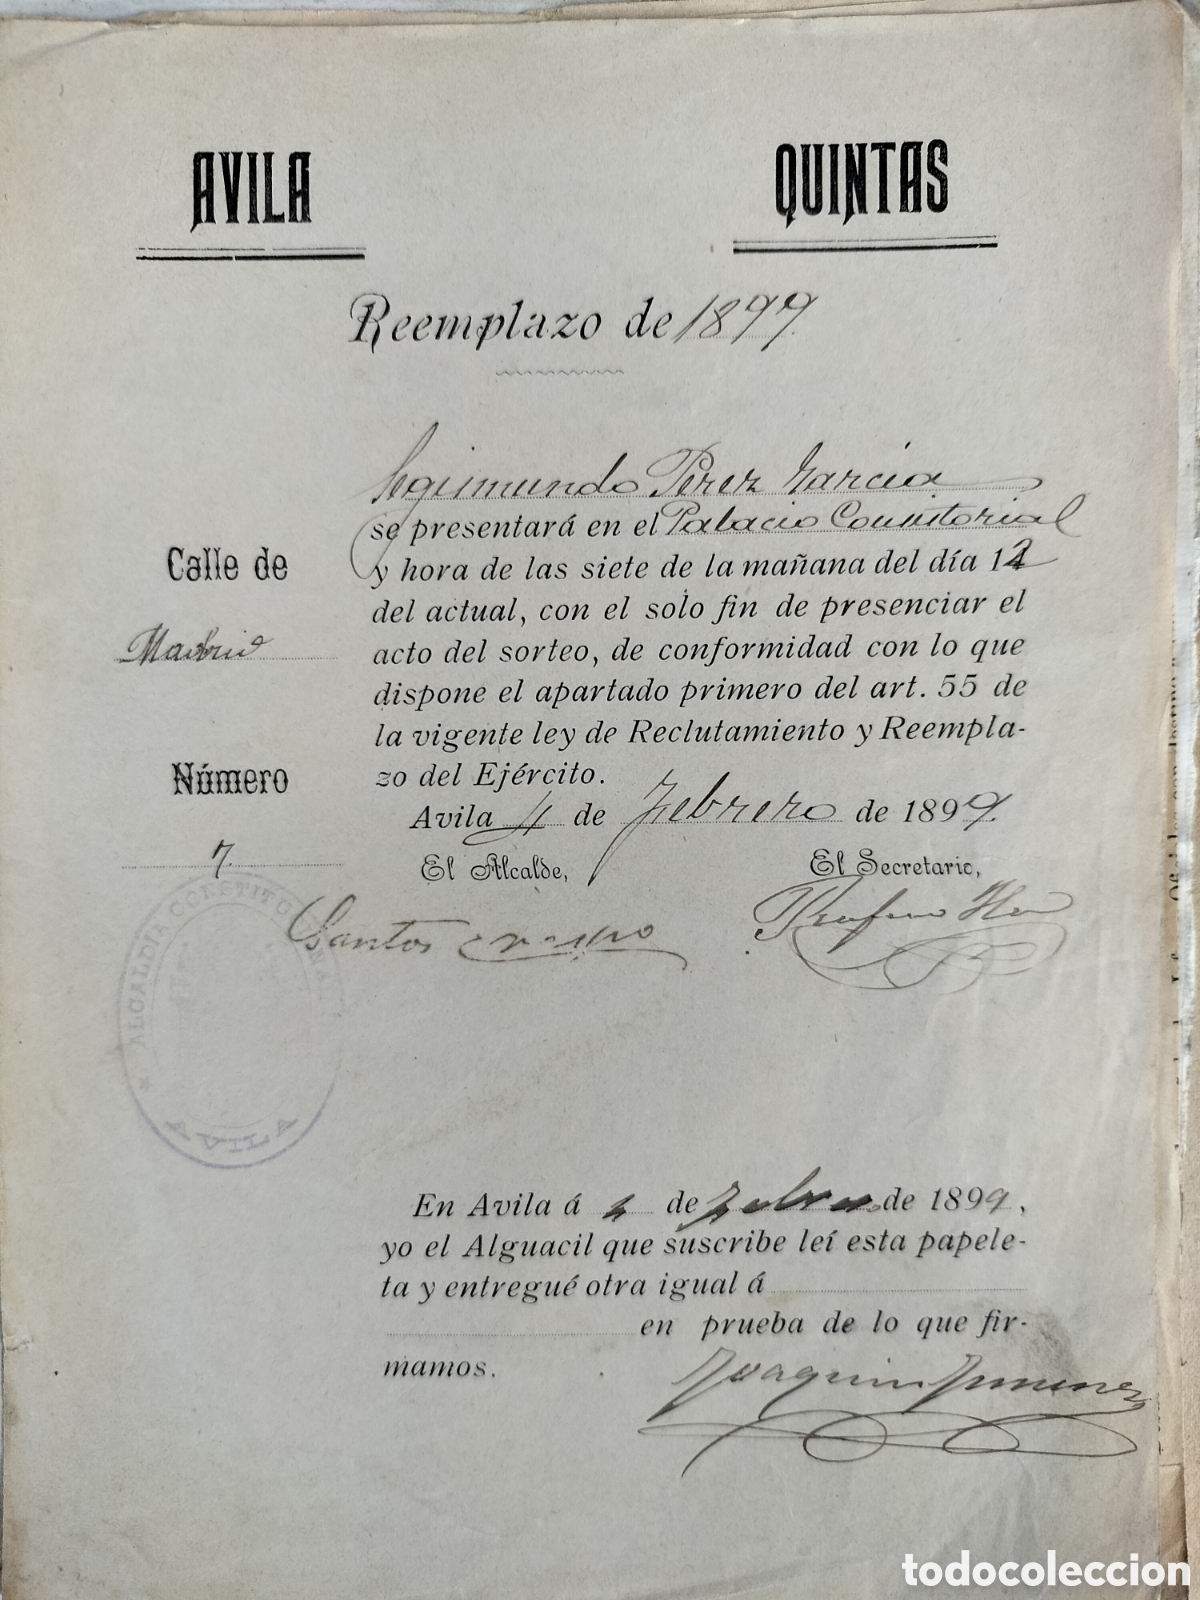 AVILA
QUINTAS
Reemplazo de 1899.
Segimundo Perez Garcia
se presentará en el Palacio Consistorial
Calle de
y hora de las siete de la mañana del día 12
del actual, con el solo fin de presenciar el
Madrid
acto del sorteo, de conformidad con lo que
dispone el apartado primero del art. 55 de
la vigente ley de Reclutamiento y Reempla-
Número
zo del Ejército.
Avila 4 de Febrero de 1899.
7.
El Alcalde,
El Secretario,
Santos Crespo
Rufino
ALCALDIA CONSTITUCIONAL
AVILA
En Avila á 4 de Febrero de 1899,
yo el Alguacil que suscribe leí esta papele-
ta y entregué otra igual á
en prueba de lo que fir-
mamos.
Joaquin Jimenez
todocoleccion